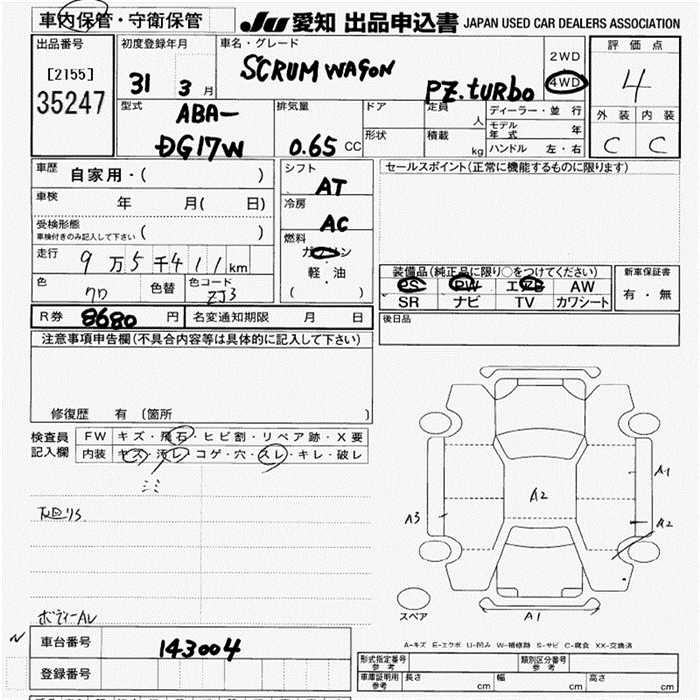 車内保管・守衛保管
JU 愛知 出品申込書 JAPAN USED CAR DEALERS ASSOCIATION
出品番号
[2155]
35247
初度登録年月
31 3 月
車名・グレード
SCRUM WAGON
PZ.turbo
2WD
4WD
評価点
4
外装 内装
C C
型式
ABA-
DG17W
排気量
0.65 CC
ドア
形状
定員
人
積載
kg
ディーラー・並行
モデル年式 年
ハンドル 左・右
車歴
自家用・( )
車検
年 月( 日)
受検形態
車検付きのみ記入して下さい ( )
走行
9万5千411km
色
クロ
色替
色コード
ZJ3
シフト
AT
冷房
AC
燃料
ガソリン
軽・油
( )
セールスポイント(正常に機能するものに限ります)
装備品(純正品に限り○をつけてください)
PS PW エアB AW
SR ナビ TV カワシート
新車保証書
有・無
R券 8680 円
名変通知期限 月 日
後日品
注意事項申告欄(不具合内容等は具体的に記入して下さい)
修復歴 有 (箇所 )
検査員
記入欄
FW キズ・飛石・ヒビ割・リペア跡・X要
内装 キズ・汚レ・コゲ・穴・スレ・キレ・破レ
ボディーAL
A1
A2
A2
A3
A1
スペア
A-キズ E-エクボ U-凹み W-補修跡 S-サビ C-腐食 XX-交換済
車台番号
143004
登録番号
形式指定番号
参考
類別区分番号
参考
車庫証明用
参考
長さ cm
幅 cm
高さ cm